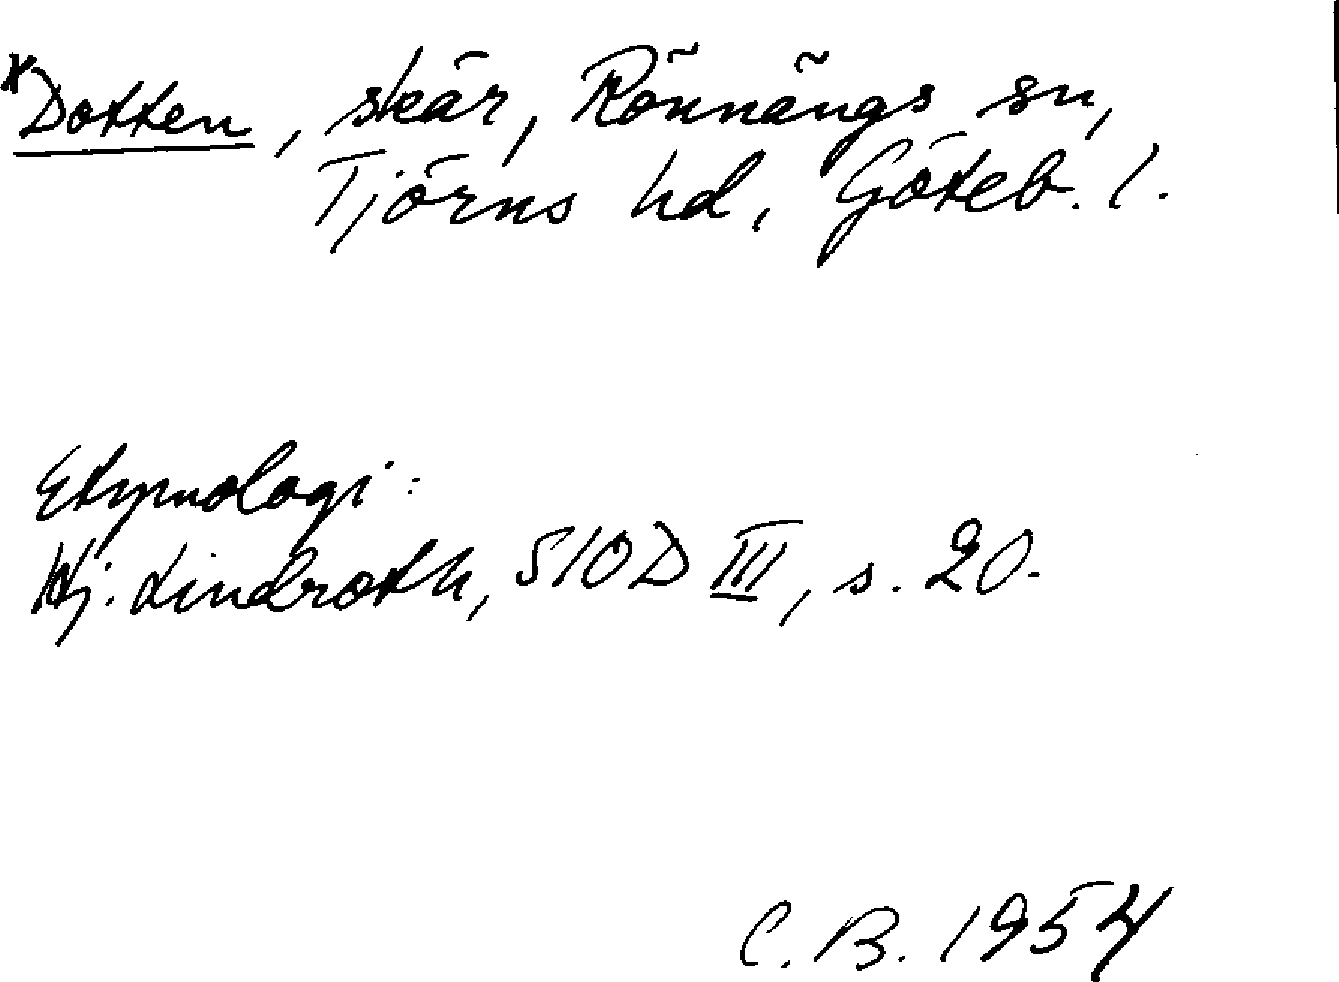 *Dotten, skär, Rönnängs sn,
Tjörns hd, Göteb. l.
Etymologi:
Hj. Lindroth, SIOD III, s. 20.
C. B. 1954